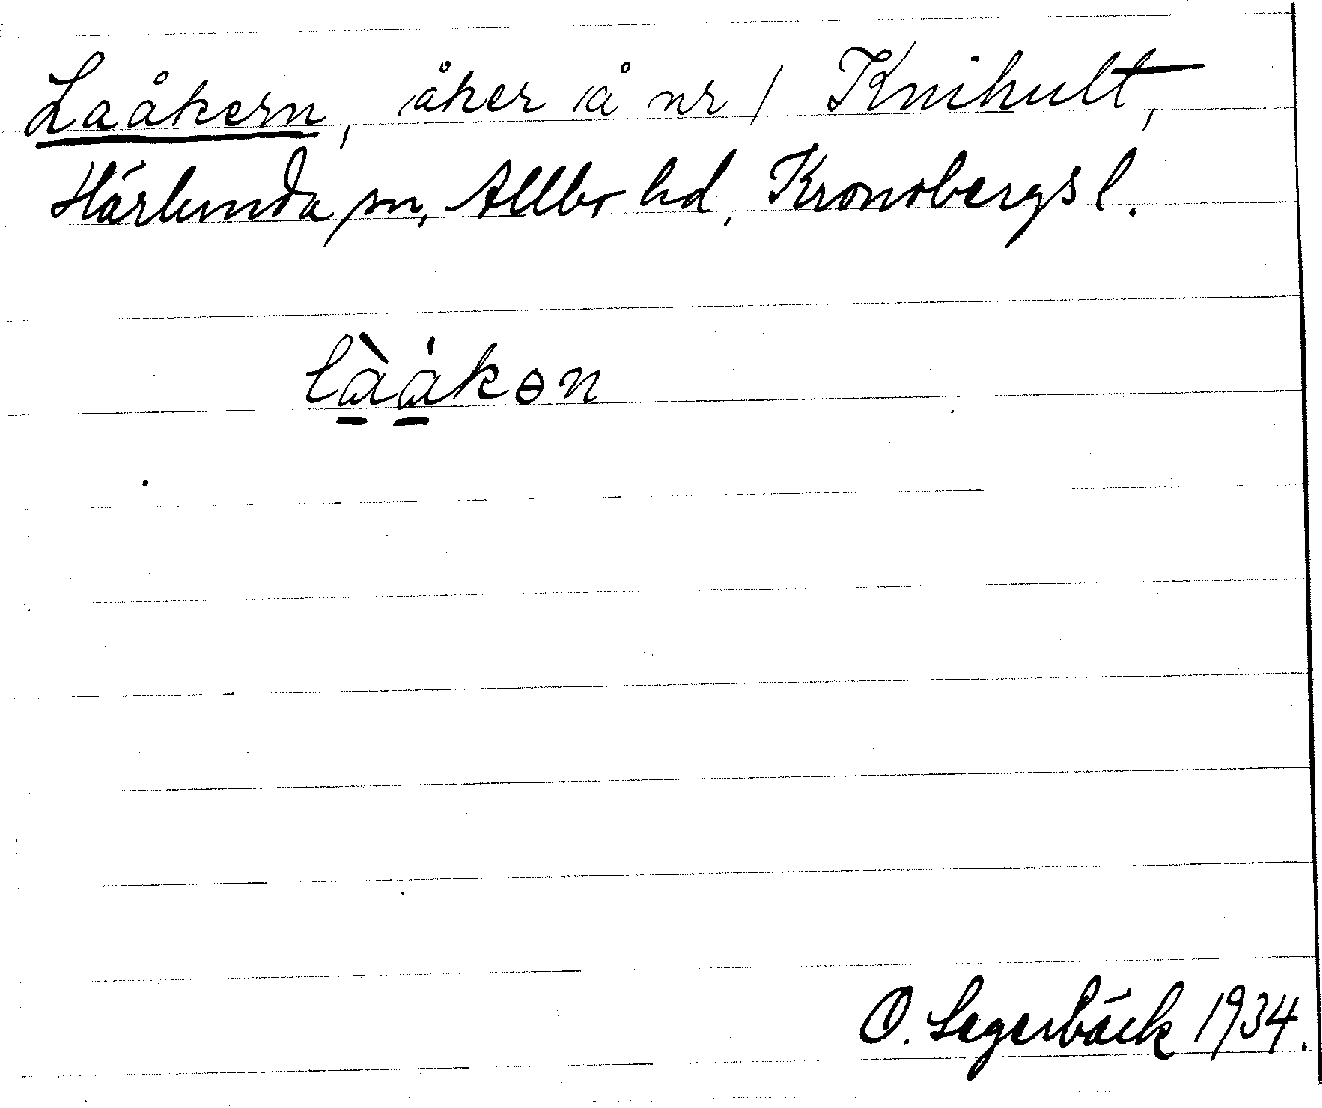 Laåkern, åker å nr 1 Knihult,
Härlunda sn, Allbo hd, Kronobergs l.
làåkɵn
O. Segerbäck 1934.